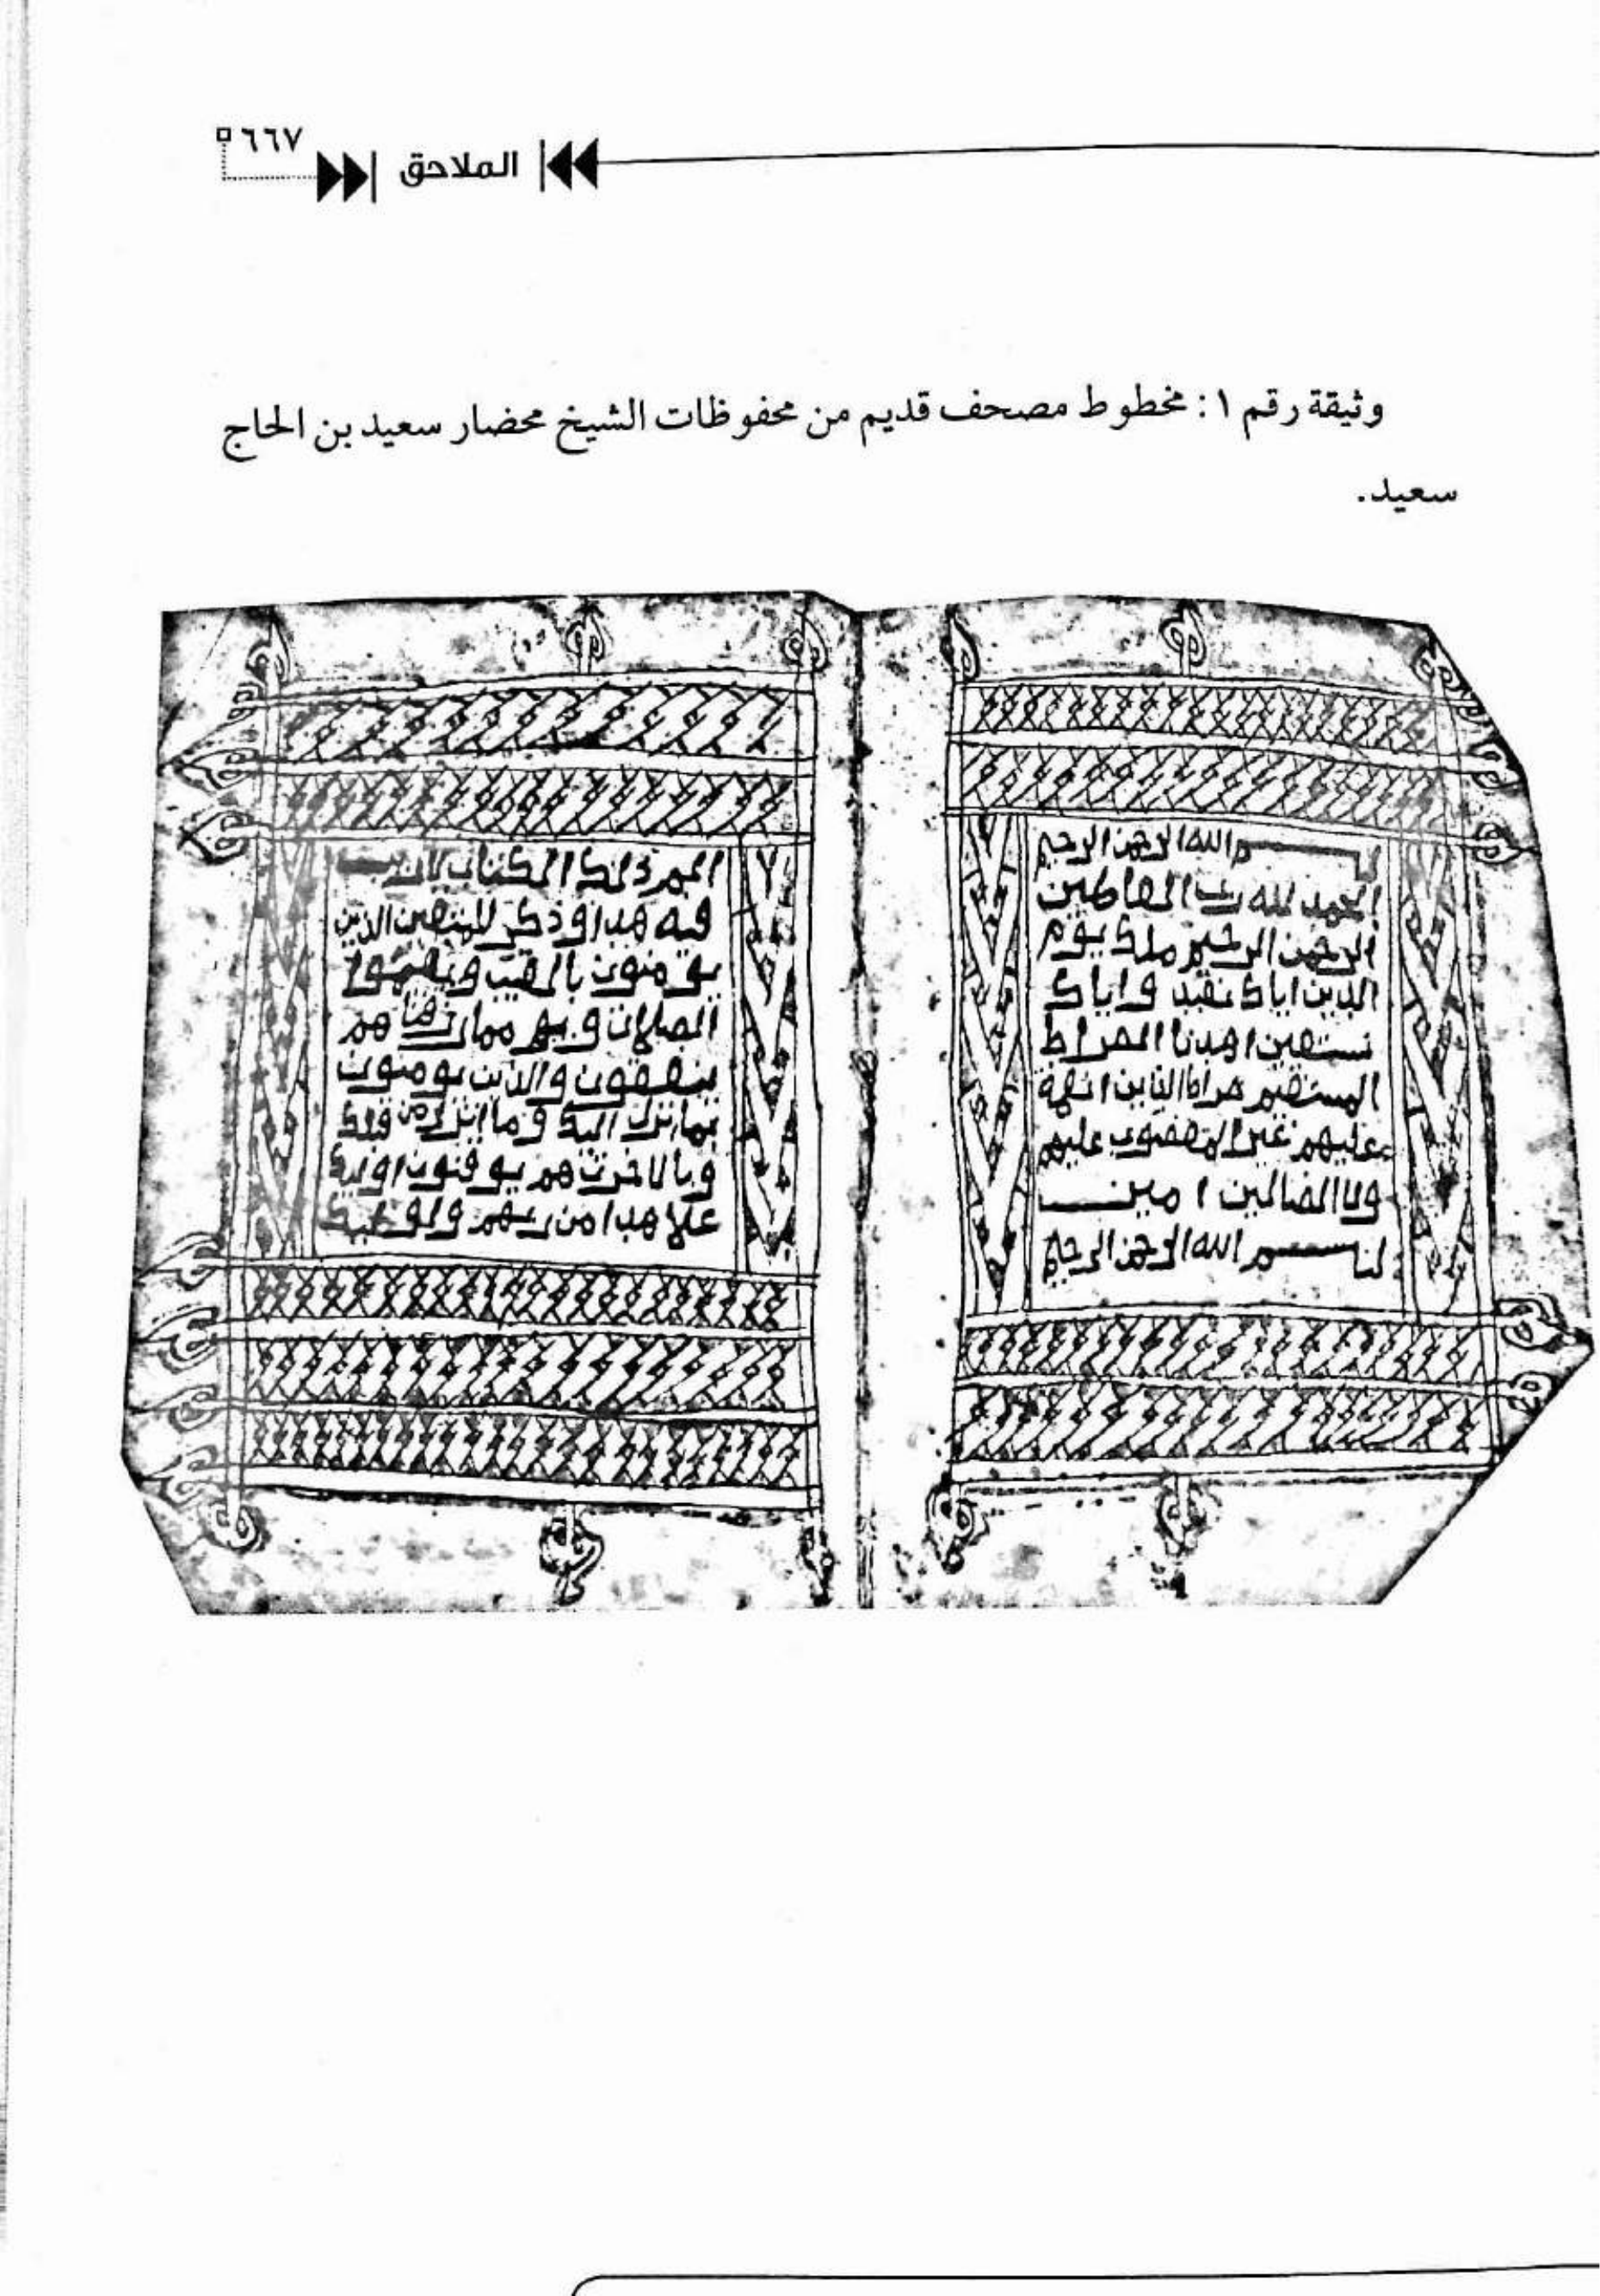 ٦٦٧
الملاحق
وثيقة رقم ١: مخطوط مصحف قديم من محفوظات الشيخ محضار سعيد بن الحاج
سعيد.
بسم الله الرحمن الرحيم
الحمد لله رب العالمين
الرحمن الرحيم ملك يوم
الدين اياك نعبد و اياك
نستعين اهدنا الصراط
المستقيم صراط الذين انعمة
عليهم غير المغضوب عليهم
ولا الضالين امين
بسم الله الرحمن الرحيم
الم ذلك الكتاب لا ريب
فيه هدا و ذكر للمتقين الذين
يؤمنون بالغيب و يقيموا
الصلات و مما رزقنا هم
ينفقون والذين يومنون
بما انزل اليك و ما انزل من قبلك
وبالاخرت هم يوقنون اوليك
علا هدا من ربهم و